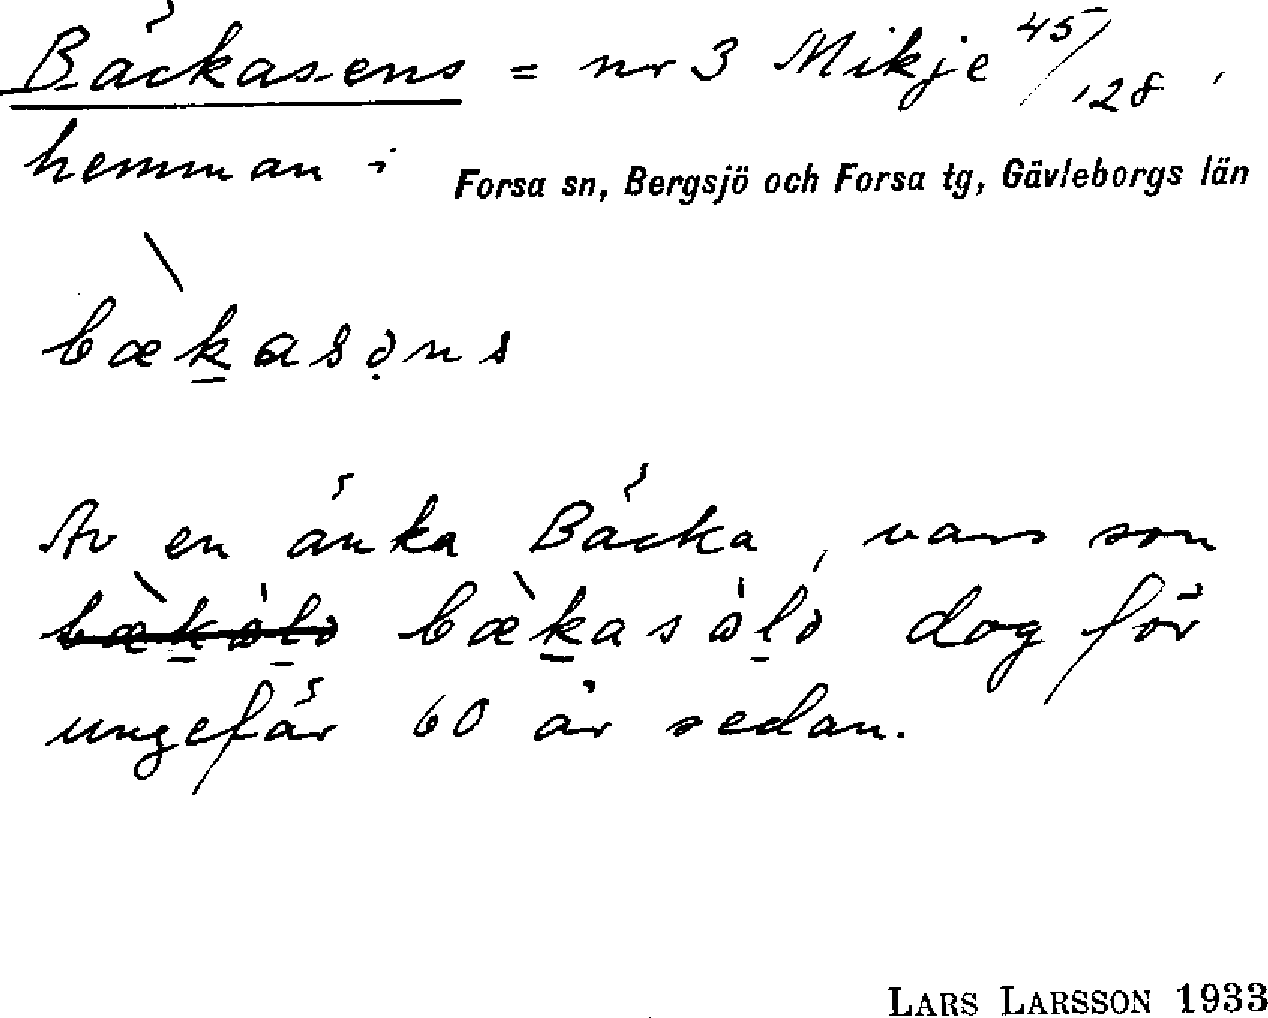 Bäckasens = nr 3 Mikje 45/128,
hemman i Forsa sn, Bergsjö och Forsa tg, Gävleborgs län
bækasəns
Av en änka Bäcka, vars son
bækasəlo dog för
ungefär 60 år sedan.
LARS LARSSON 1933